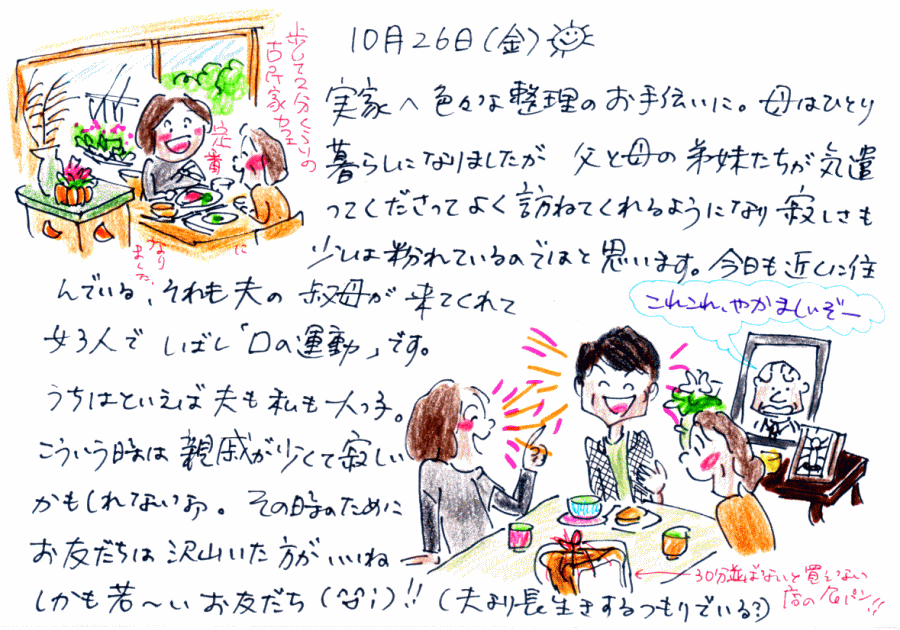 10月26日(金)
実家へ色々な整理のお手伝いに。母はひとり
暮らしになりましたが 父と母の弟妹たちが気遣
ってくださってよく訪ねてくれるようになり寂しさも
少しは紛れているのではと思います。今日も近くに住
んでいる、それも夫の叔母が来てくれて
女3人でしばし「口の運動」です。
うちはといえば夫も私も一人っ子。
こういう時は親戚が少くて寂しい
かもしれないなぁ。その時のために
お友だちは沢山いた方がいいね
しかも若〜いお友だち(^^;)!!(夫より長生きするつもりでいる?)
歩いて2分くらいの
古民家カフェ
定番
に
なり
ました。
これこれ、やかましいぞー
30分並ばないと買えない
店の名パン!!